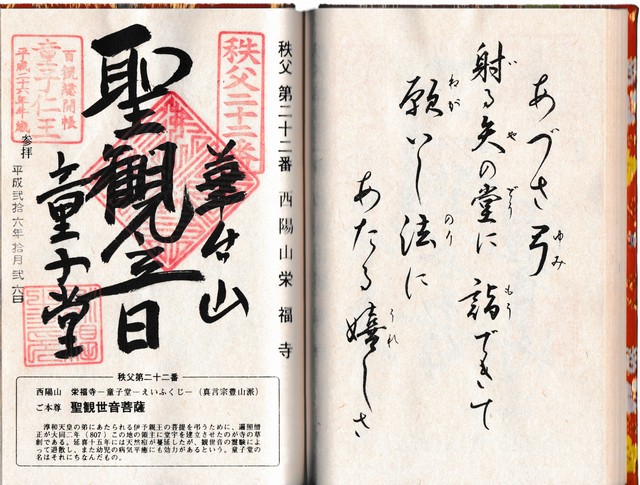 あづさ弓
ゆみ
射る矢の堂に詣できて
い　や　どう　もう
願いし法に
ねが　のり
あたる嬉しさ
うれ
秩父 第二十二番 西陽山栄福寺
秩父二十二番
華台山
聖観世音
童子堂
百観音総開帳
童子仁王
平成二十六年午歳
参拝
平成弐拾六年拾月弐六日
秩父第二十二番
西陽山 栄福寺－童子堂－えいふくじ－(真言宗豊山派)
ご本尊 聖観世音菩薩
淳和天皇の弟にあたられる伊予親王の菩提を弔うために、遍照僧
正が大同二年(807)この地の領主に堂宇を建立させたのが寺の草
創である。延喜十五年には天然痘が蔓延したが、観世音の霊験によ
って退散し、また幼児の病気平癒にも効力があるという。童子堂の
名はそれにちなんだもの。